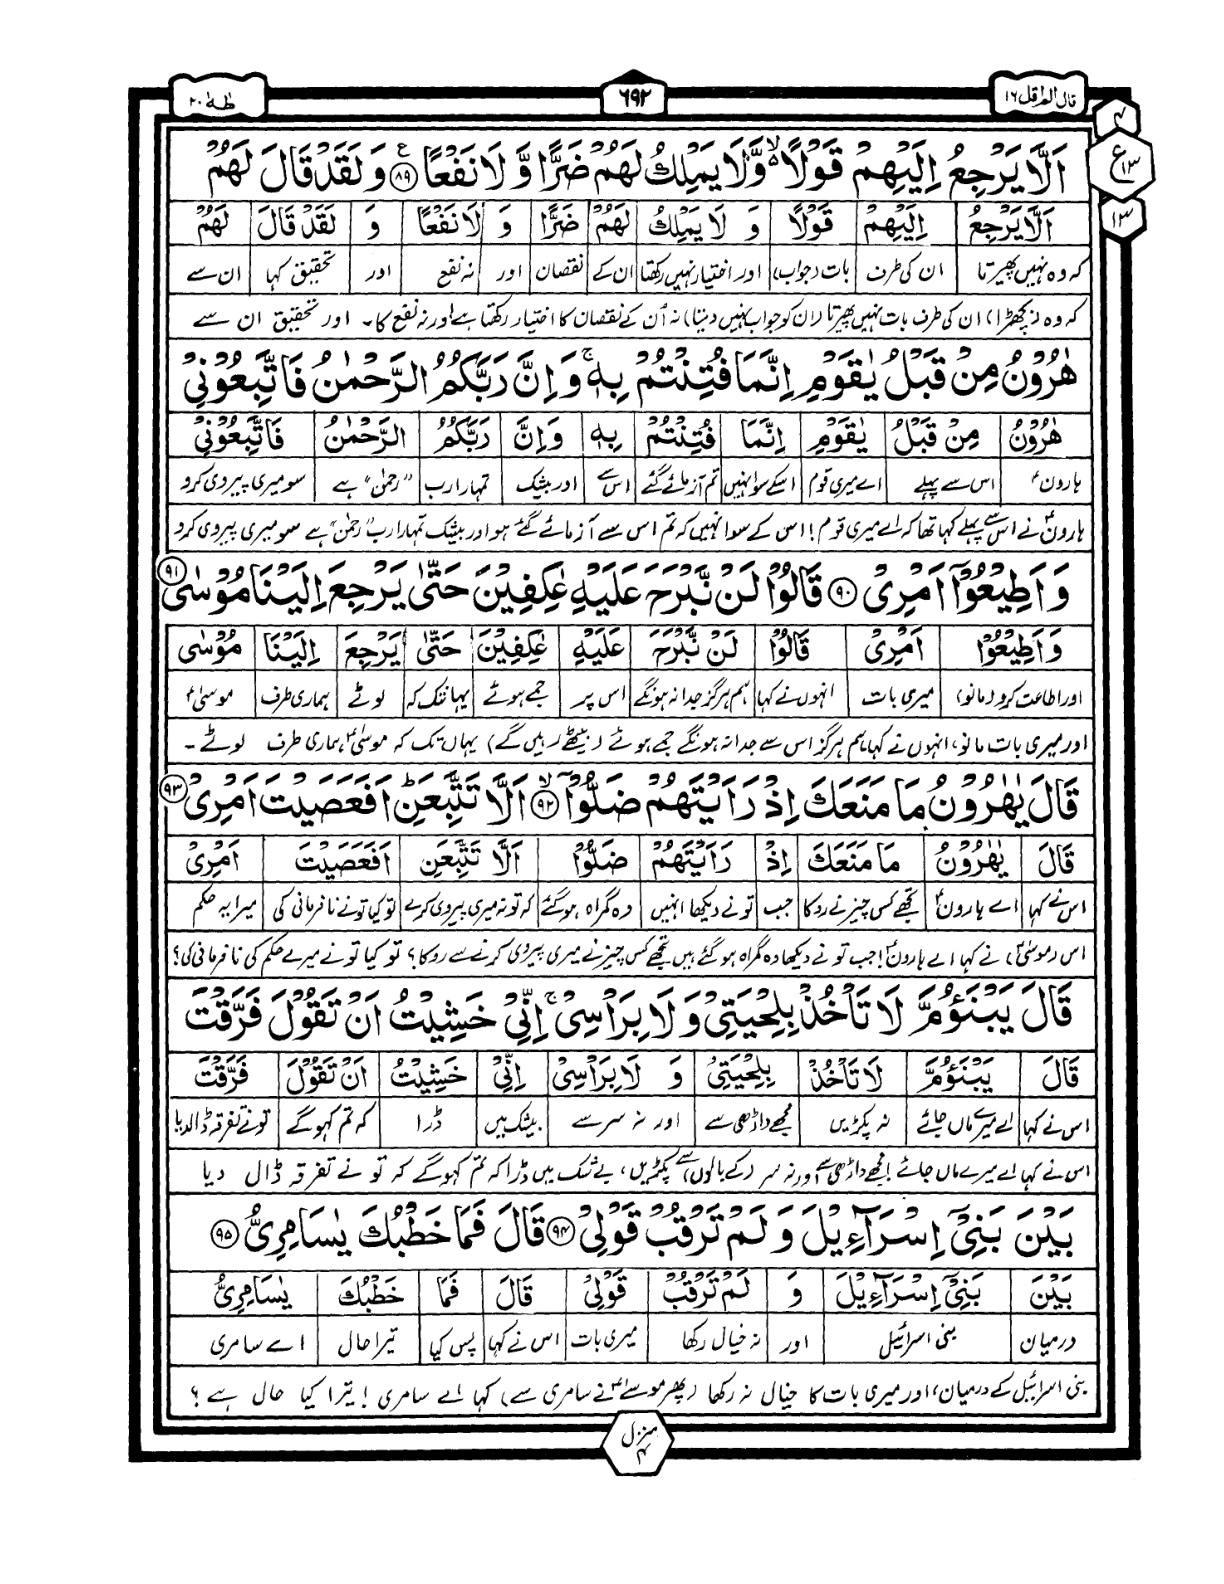 قال الم اقل ١٦
٦٩٢
طٰهٰ ٢٠
اَلَّا يَرْجِعُ اِلَيْهِمْ قَوْلًا ۙ وَّلَا يَمْلِكُ لَهُمْ ضَرًّا وَّلَا نَفْعًا ﴿٨٩﴾ وَلَقَدْ قَالَ لَهُمْ
ع ١٣
١٣
اَلَّا يَرْجِعُ اِلَيْهِمْ قَوْلًا وَ لَا يَمْلِكُ لَهُمْ ضَرًّا وَ لَا نَفْعًا وَ لَقَدْ قَالَ لَهُمْ
کہ وہ نہیں پھیرتا ان کی طرف بات (جواب) اور اختیار نہیں رکھتا ان کے نقصان اور نہ نفع اور تحقیق کہا ان سے
کہ وہ (بچھڑا) ان کی طرف بات نہیں پھیرتا (ان کو جواب نہیں دیتا) نہ اُن کے نقصان کا اختیار رکھتا ہے اور نہ نفع کا۔ اور تحقیق ان سے
هٰرُوْنُ مِنْ قَبْلُ يٰقَوْمِ اِنَّمَا فُتِنْتُمْ بِهٖ ۚ وَاِنَّ رَبَّكُمُ الرَّحْمٰنُ فَاتَّبِعُوْنِيْ
هٰرُوْنُ مِنْ قَبْلُ يٰقَوْمِ اِنَّمَا فُتِنْتُمْ بِهٖ وَاِنَّ رَبَّكُمُ الرَّحْمٰنُ فَاتَّبِعُوْنِيْ
ہارونؑ اس سے پہلے اے میری قوم اسکے سوا نہیں تم آزمائے گئے اس سے اور بیشک تمہارا رب "رحمٰن" ہے سو میری پیروی کرو
ہارونؑ نے اس سے پہلے کہا تھا کہ اے میری قوم! اس کے سوا نہیں کہ تم اس سے آزمائے گئے ہو اور بیشک تمہارا رب "رحمٰن" ہے سو میری پیروی کرو
وَاَطِيْعُوْٓا اَمْرِيْ ﴿٩٠﴾ قَالُوْا لَنْ نَّبْرَحَ عَلَيْهِ عٰكِفِيْنَ حَتّٰى يَرْجِعَ اِلَيْنَا مُوْسٰى ﴿٩١﴾
وَاَطِيْعُوْٓا اَمْرِيْ قَالُوْا لَنْ نَّبْرَحَ عَلَيْهِ عٰكِفِيْنَ حَتّٰى يَرْجِعَ اِلَيْنَا مُوْسٰى
اور اطاعت کرو (مانو) میری بات انہوں نے کہا ہم ہرگز جدا نہ ہونگے اس پر جمے ہوئے یہانتک کہ لوٹے ہماری طرف موسٰیؑ
اور میری بات مانو، انہوں نے کہا ہم ہرگز اس سے جدا نہ ہونگے جمے ہوئے (بیٹھے رہیں گے) یہاں تک کہ موسٰیؑ ہماری طرف لوٹے۔
قَالَ يٰهٰرُوْنُ مَا مَنَعَكَ اِذْ رَاَيْتَهُمْ ضَلُّوْٓا ﴿٩٢﴾ ۙ اَلَّا تَتَّبِعَنِ ؕ اَفَعَصَيْتَ اَمْرِيْ ﴿٩٣﴾
قَالَ يٰهٰرُوْنُ مَا مَنَعَكَ اِذْ رَاَيْتَهُمْ ضَلُّوْٓا اَلَّا تَتَّبِعَنِ اَفَعَصَيْتَ اَمْرِيْ
اس نے کہا اے ہارونؑ تجھے کس چیز نے روکا جب تو نے دیکھا انہیں وہ گمراہ ہوگئے کہ تو نہ میری پیروی کرے تو کیا تو نے نافرمانی کی میرا یہ حکم
اس (موسٰیؑ) نے کہا اے ہارونؑ! جب تو نے دیکھا وہ گمراہ ہو گئے ہیں تجھے کس چیز نے میری پیروی کرنے سے روکا؟ تو کیا تو نے میرے حکم کی نافرمانی کی؟
قَالَ يَبْنَؤُمَّ لَا تَاْخُذْ بِلِحْيَتِيْ وَلَا بِرَاْسِيْ ۚ اِنِّيْ خَشِيْتُ اَنْ تَقُوْلَ فَرَّقْتَ
قَالَ يَبْنَؤُمَّ لَا تَاْخُذْ بِلِحْيَتِيْ وَ لَا بِرَاْسِيْ اِنِّيْ خَشِيْتُ اَنْ تَقُوْلَ فَرَّقْتَ
اس نے کہا اے میرے ماں جائے نہ پکڑیں مجھے داڑھی سے اور نہ سر سے بیشک میں ڈرا کہ تم کہو گے تو نے تفرقہ ڈالدیا
اس نے کہا اے میرے ماں جائے! مجھے داڑھی سے اور نہ سر (کے بالوں) سے پکڑیں، بے شک میں ڈرا کہ تم کہو گے کہ تو نے تفرقہ ڈال دیا
بَيْنَ بَنِيْٓ اِسْرَآءِيْلَ وَلَمْ تَرْقُبْ قَوْلِيْ ﴿٩٤﴾ قَالَ فَمَا خَطْبُكَ يٰسَامِرِيُّ ﴿٩٥﴾
بَيْنَ بَنِيْٓ اِسْرَآءِيْلَ وَ لَمْ تَرْقُبْ قَوْلِيْ قَالَ فَمَا خَطْبُكَ يٰسَامِرِيُّ
درمیان بنی اسرائیل اور نہ خیال رکھا میری بات اس نے کہا پس کیا تیرا حال اے سامری
بنی اسرائیل کے درمیان، اور میری بات کا خیال نہ رکھا (پھر موسٰےؑ نے سامری سے) کہا اے سامری! تیرا کیا حال ہے؟
منزل ٤